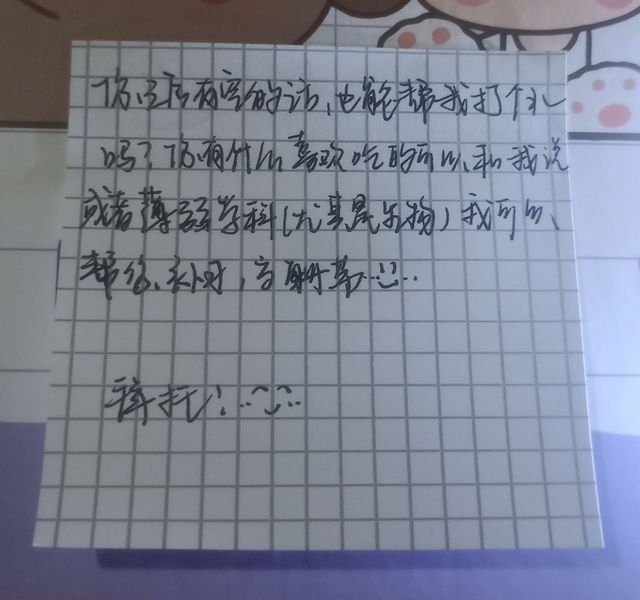 你以后有空的话,也能帮我打个水
吗?你有什么喜欢吃的可以和我说
或者薄弱学科(尤其是生物)我可以
帮你补习,
拜托!